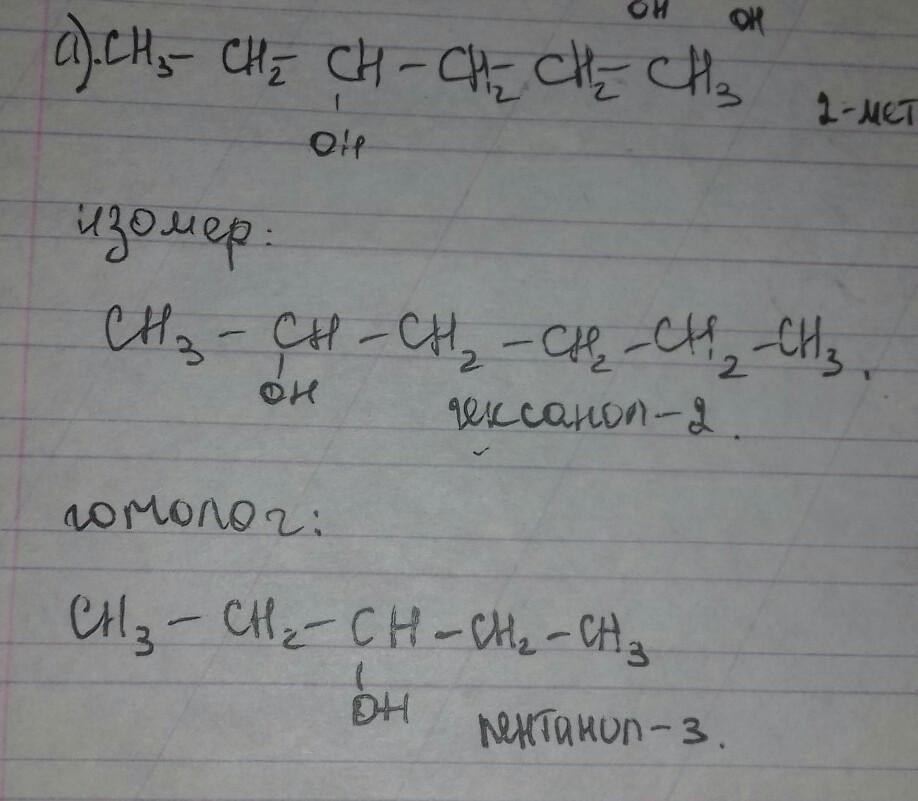 OH OH
а). CH₃ – CH₂ – CH – CH₂ – CH₂ – CH₃
2-мет
OH
изомер:
CH₃ – CH – CH₂ – CH₂ – CH₂ – CH₃.
OH
гексанол-2.
гомолог:
CH₃ – CH₂ – CH – CH₂ – CH₃
OH
пентанол-3.